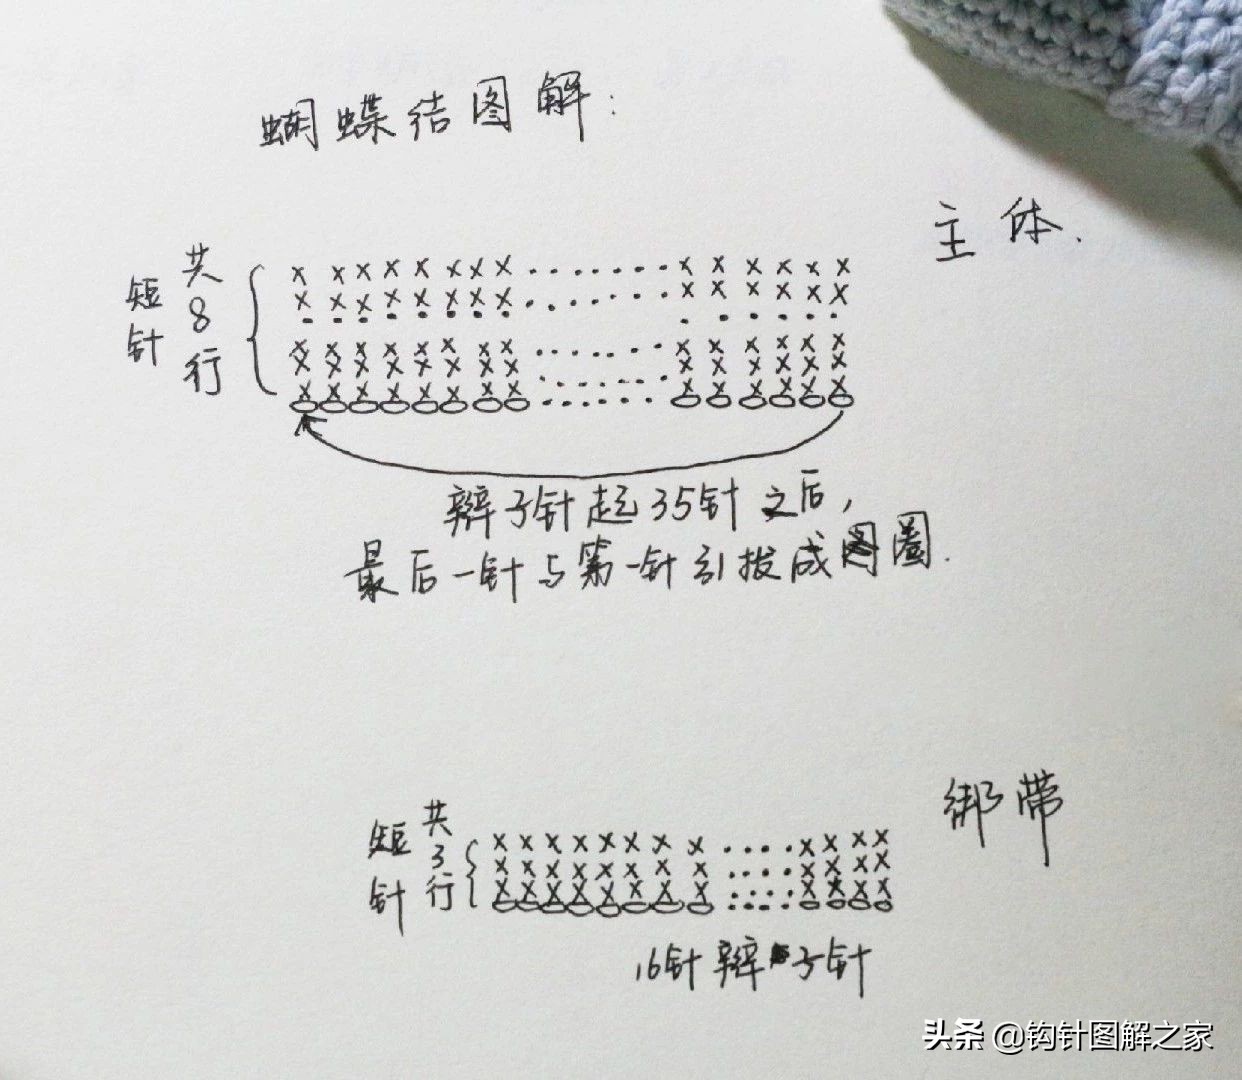 蝴蝶结图解:
主体.
短针
共8行
辫子针起35针之后,
最后一针与第一针引拔成圈.
绑带
短针
共3行
16针辫子针
头条 @钩针图解之家